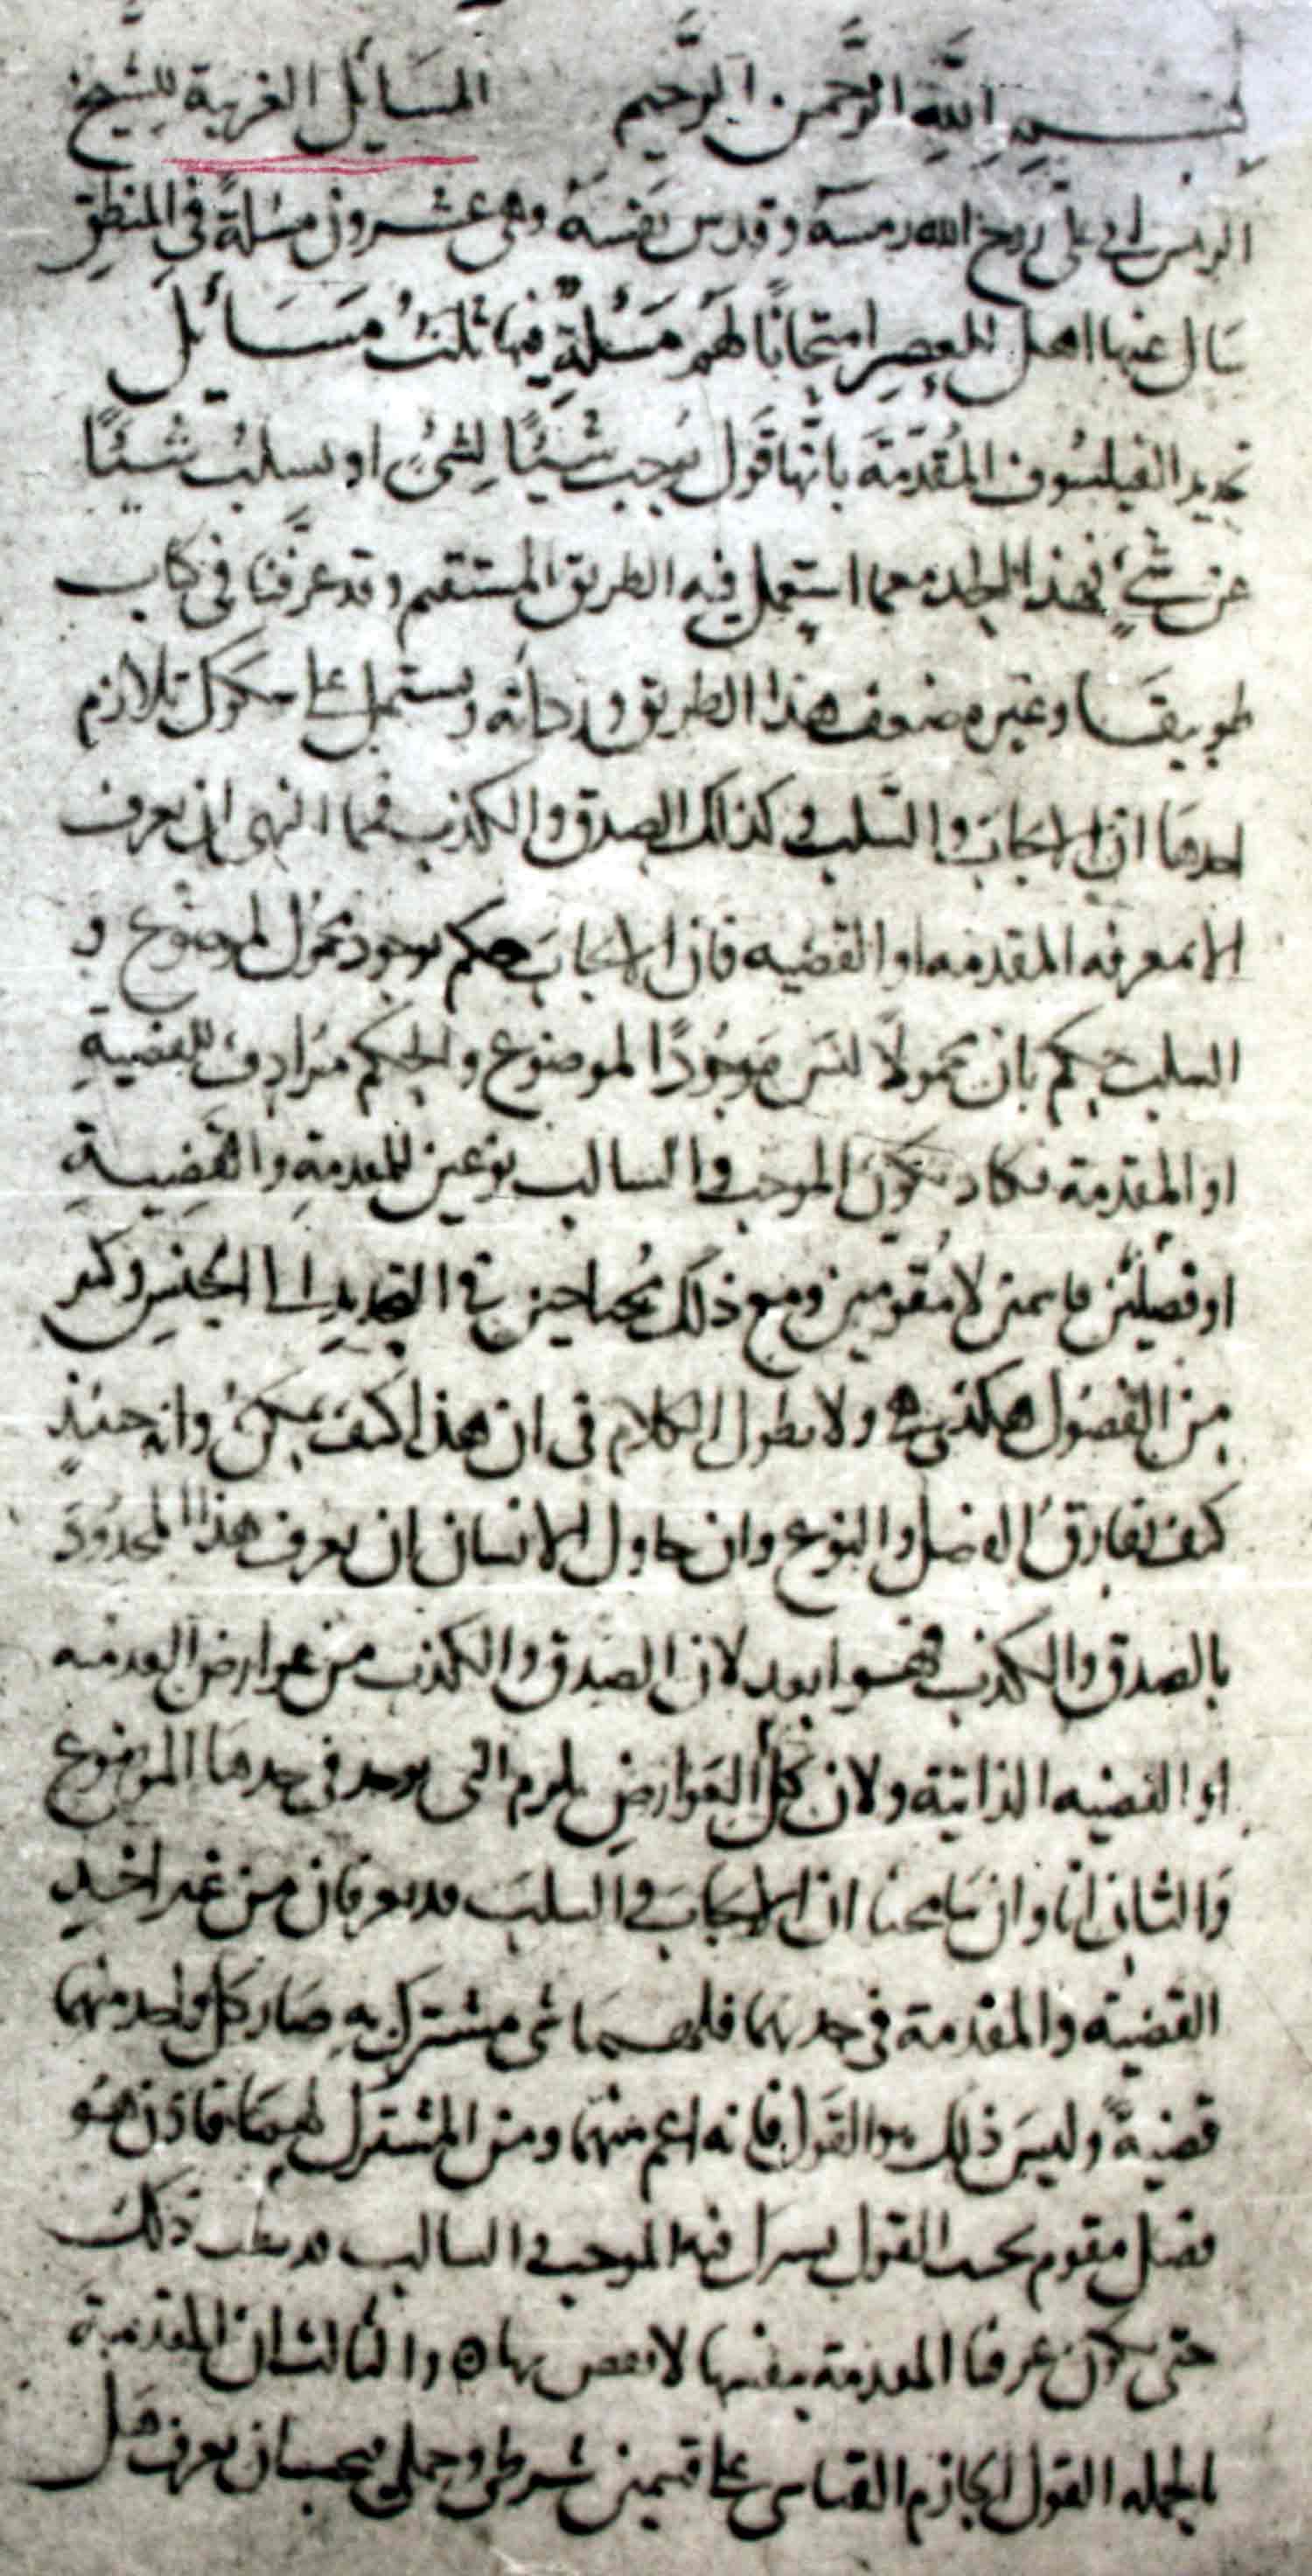 بسم الله الرحمن الرحيم المسائل الغريبة للشيخ
الرئيس ابى على روح الله رمسه وقدس نفسه وهى عشرون مسئلة في المنطق
سال عنها اهل العصر امتحانًا لهم مسئلة فيها ثلث مسائل
تحديد الفيلسوف المقدمة بانها قول يوجب شيئًا لشئ او يسلب شيئًا
عن شئ فهذا الحد مما استعمل فيه الطريق المستقيم وقد عرفنا في كتاب
طوبيقا وغيره ضعف هذا الطريق ورداته ويشتمل على شكوك تلازم
احدها ان الايجاب والسلب وكذلك الصدق والكذب فما انهى ان يعرف
الا بمعرفة المقدمه او القضيه فان الايجاب حكم بوجود محمول لموضوع و
السلب حكم بان محمولا ليس موجودًا لموضوع والحكم مرادف للقضية
او المقدمة فكاد يكون الموجب والسالب نوعين للمقدمة والقضية
او فصلين قاسمين لا مقومين ومع ذلك محتاجين في التحديد الى الجنس وكثير
من الفصول هكذى هى ولا يطول الكلام في ان هذا كيف يمكن وانه حينئذ
كيف تفارق الفصل والنوع وان حاول الانسان ان يعرف هذا المحدود
بالصدق والكذب فهو ابعد لان الصدق والكذب من عوارض المقدمه
او القضيه الذاتية ولان كل العوارض يلزم التى يوجد في حدها الموضوع
والثانى انا وان سامحنا ان الايجاب والسلب قد يعرفان من غير اخذ
القضية والمقدمة في حديهما فلهما شى مشترك به صار كل واحد منهما
قضيةً وليس ذلك هو القول فانه اعم منهما ومن المشترك لهما فاذن هو
فصل مقوم تحت القول يشترك فيه الموجب والسالب فيطلب ذلك
حتى يكون عرفنا المقدمة بنفسها لا بقصص بها ه والثالث ان المقدمة
بالجمله القول الجازم القياسى على قسمين شرطى وحملى فيجب ان يعرف هل